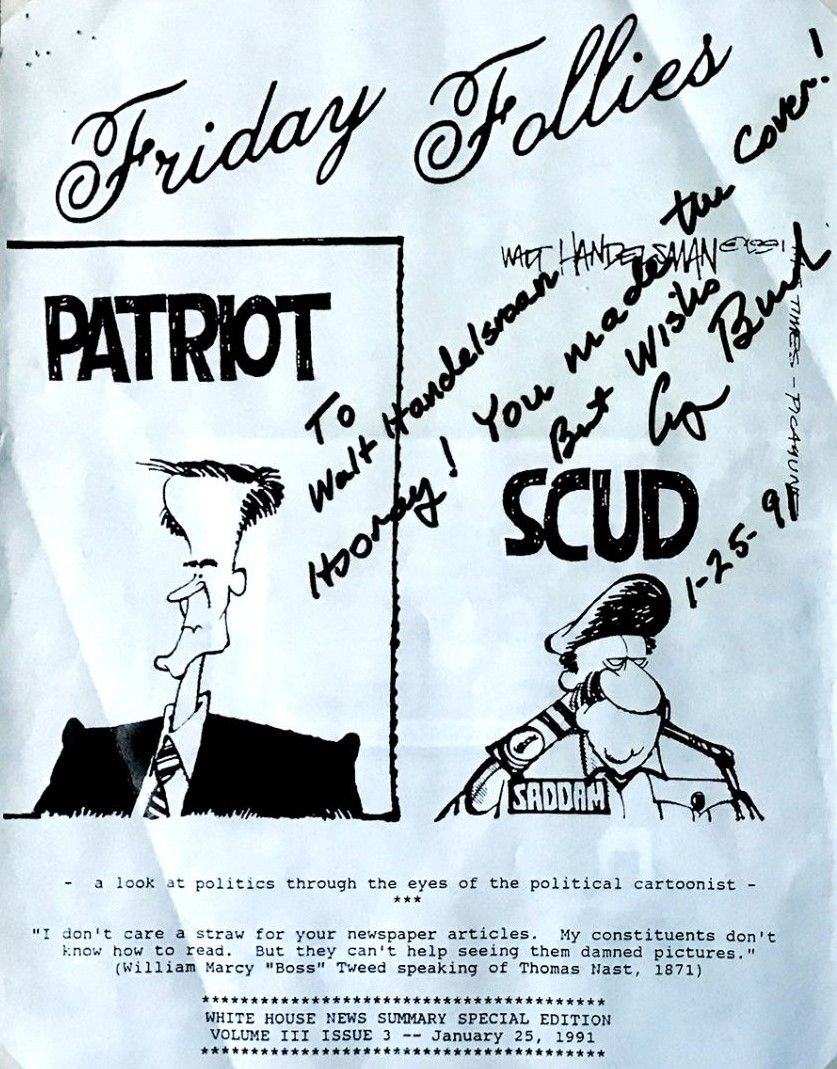 Friday Follies
WALT HANDELSMAN ©1991
THE TIMES-PICAYUNE
PATRIOT
To
Walt Handelsman
Hooray! You made the cover!
Best Wishes
1-25-91
SCUD
SADDAM
- a look at politics through the eyes of the political cartoonist -
***
"I don't care a straw for your newspaper articles. My constituents don't
know how to read. But they can't help seeing them damned pictures."
(William Marcy "Boss" Tweed speaking of Thomas Nast, 1871)
******************************************
WHITE HOUSE NEWS SUMMARY SPECIAL EDITION
VOLUME III ISSUE 3 -- January 25, 1991
******************************************